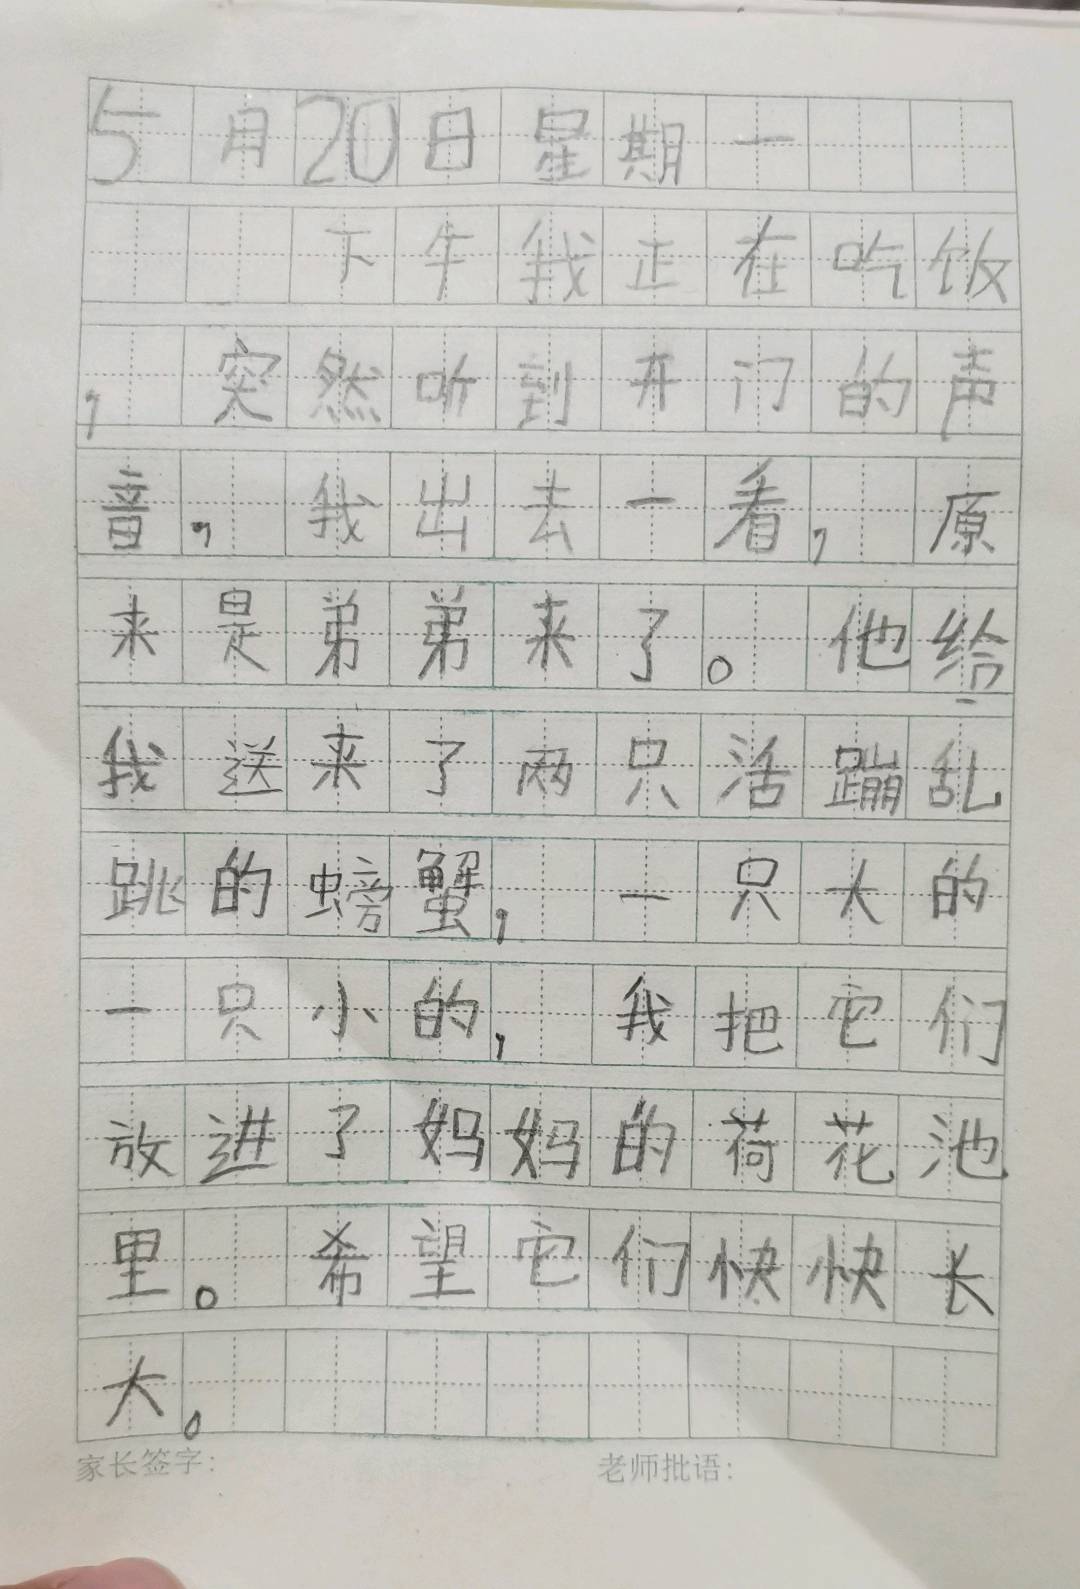 5月20日星期一
下午我正在吃饭
，突然听到开门的声
音，我出去一看，原
来是弟弟来了。他给
我送来了两只活蹦乱
跳的螃蟹，一只大的
一只小的，我把它们
放进了妈妈的荷花池
里。希望它们快快长
大。
家长签字： 老师批语：